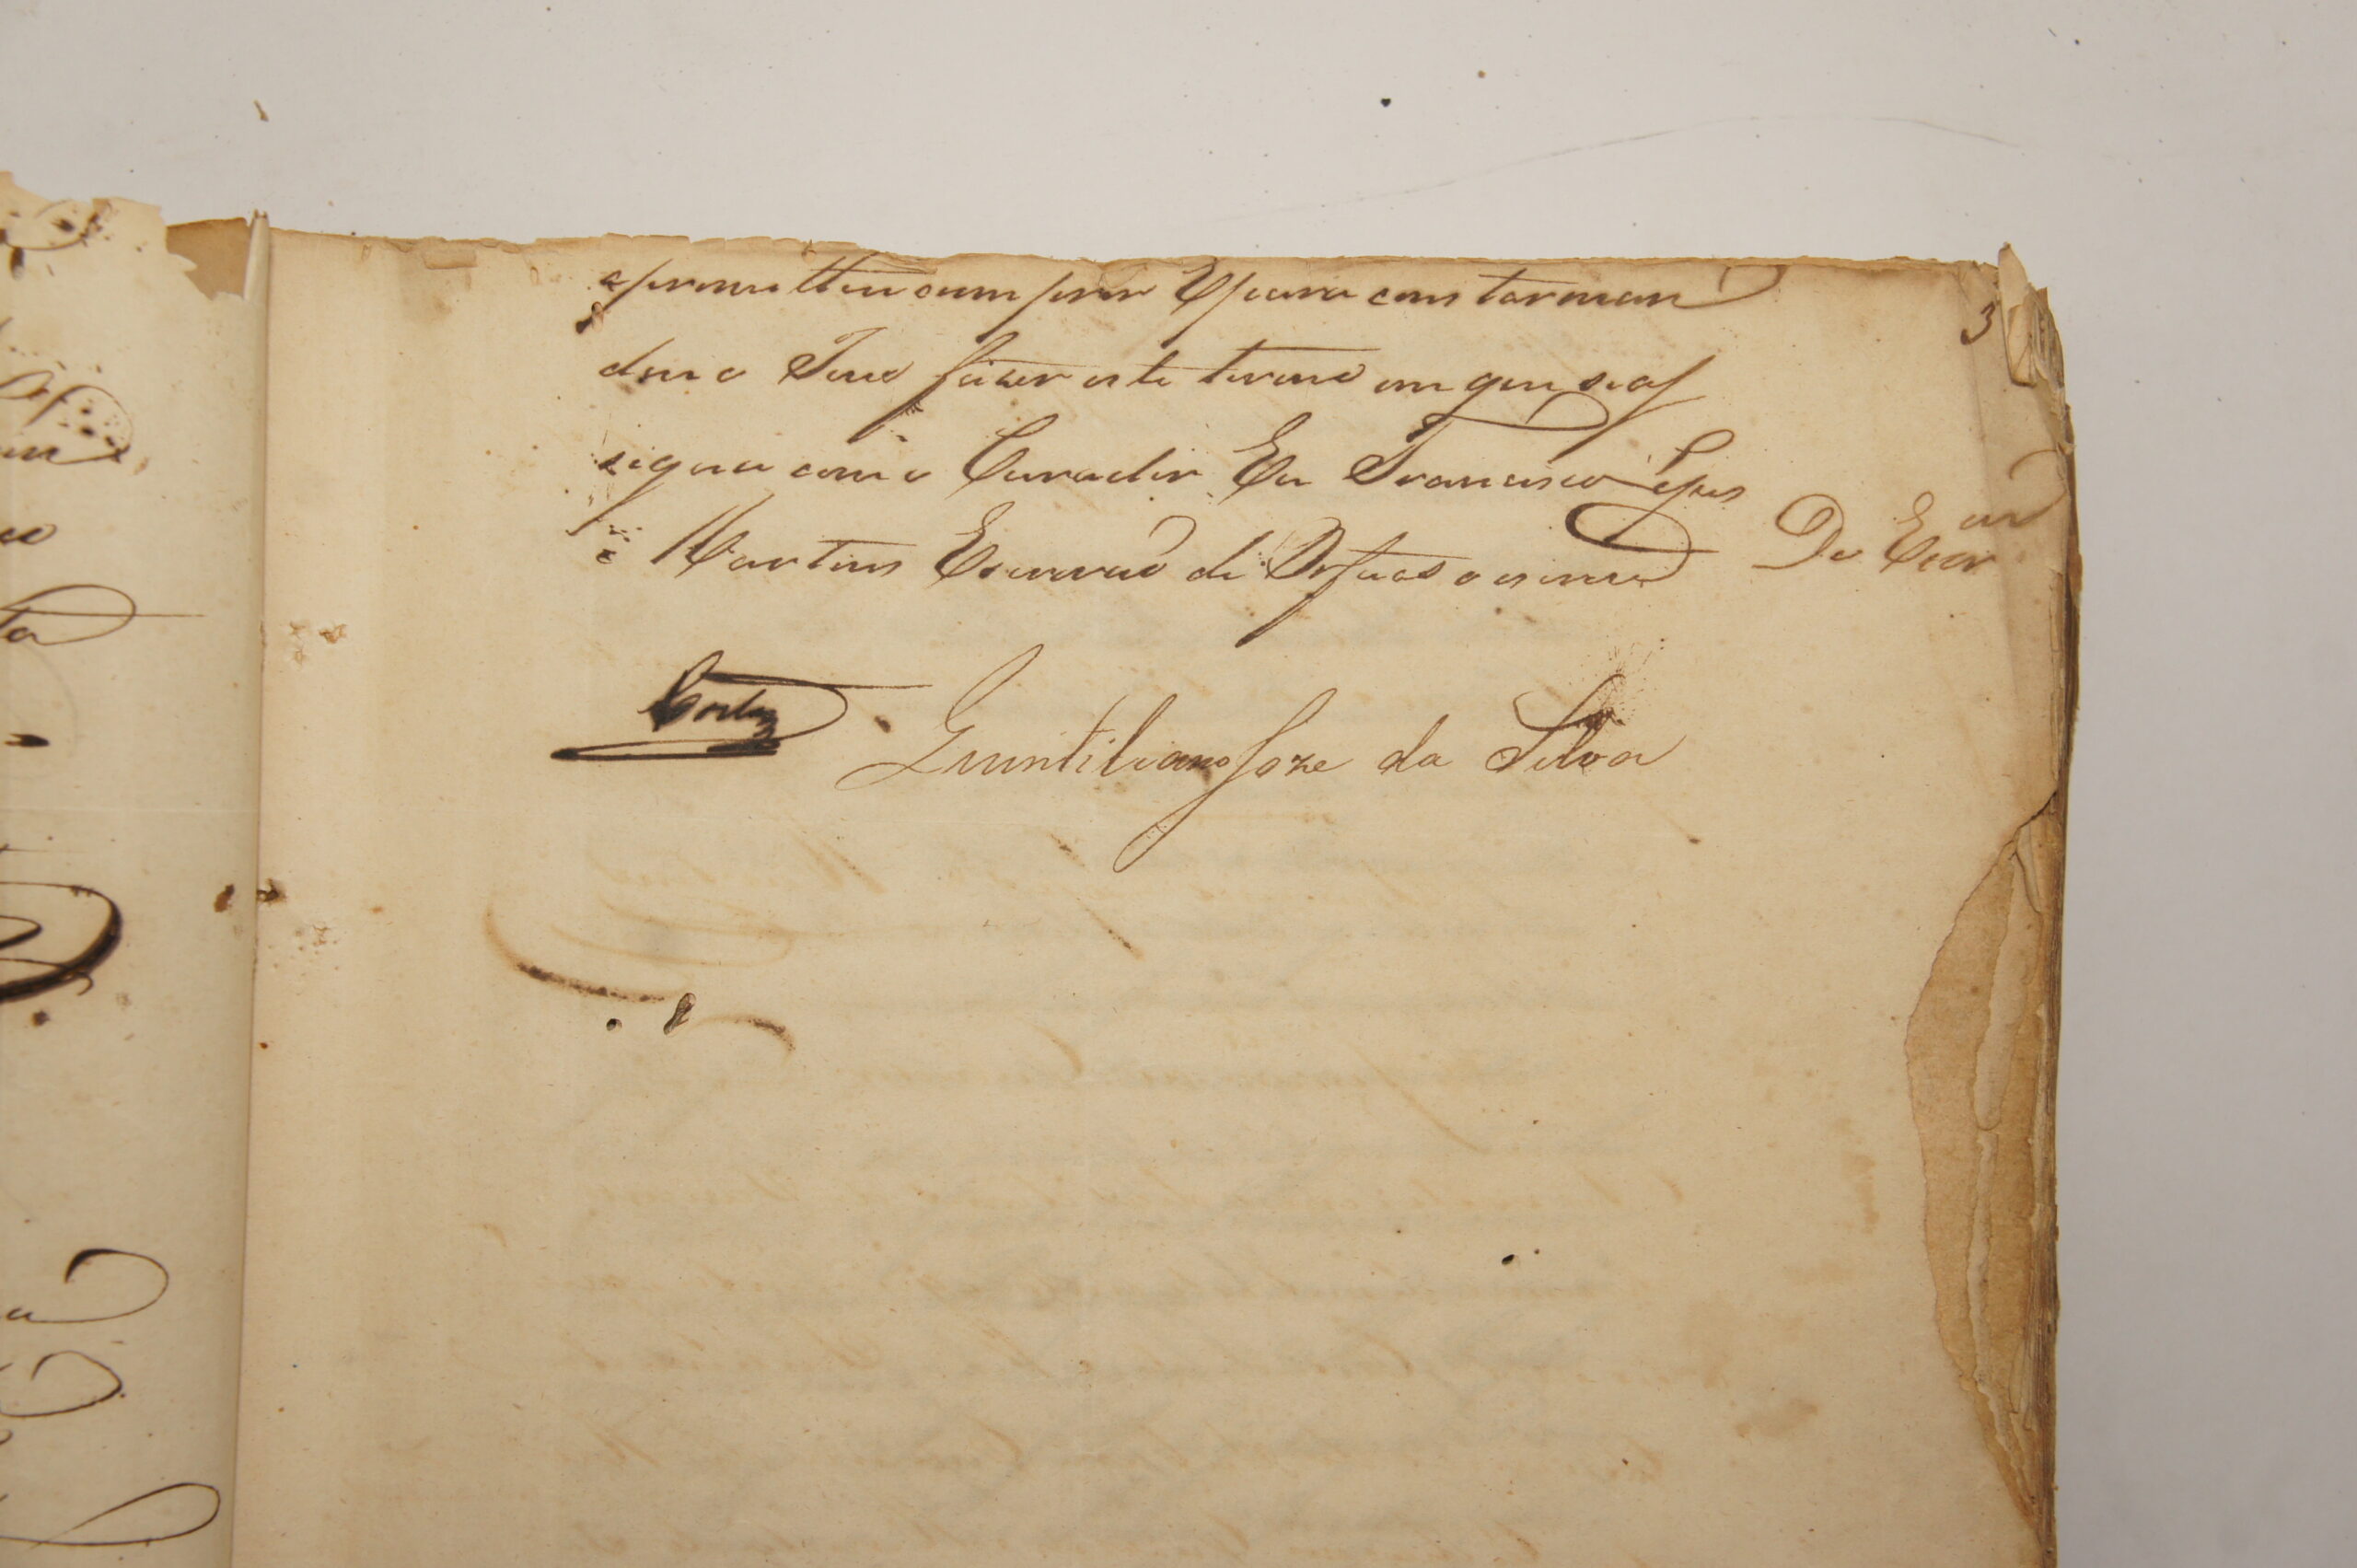 3
e prometteu cumprir E para constar man
dou o Juis fazer este termo em que se as
signa com o Curador Eu Francisco Lopes
Martins Escrivaõ de Orfaos o escrevi
Do Escr am
Quintiliano Joze da Silva